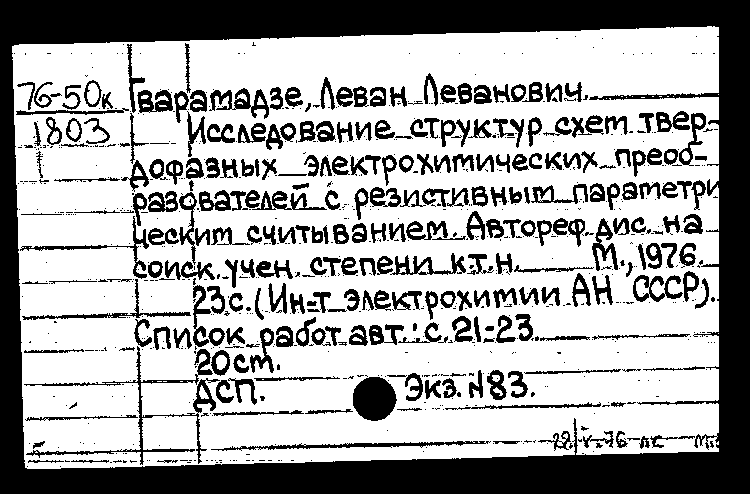 76-50к Гварамадзе, Леван Леванович.
1803 Исследование структур схем твер-
дофазных электрохимических преоб-
разователей с резистивным параметри
ческим считыванием. Автореф. дис. на
соиск. учен. степени к.т.н. М., 1976.
23с. (Ин-т электрохимии АН СССР).
Список работ авт.: с. 21-23
20 см.
ДСП. Экз. №83.
28 V-76